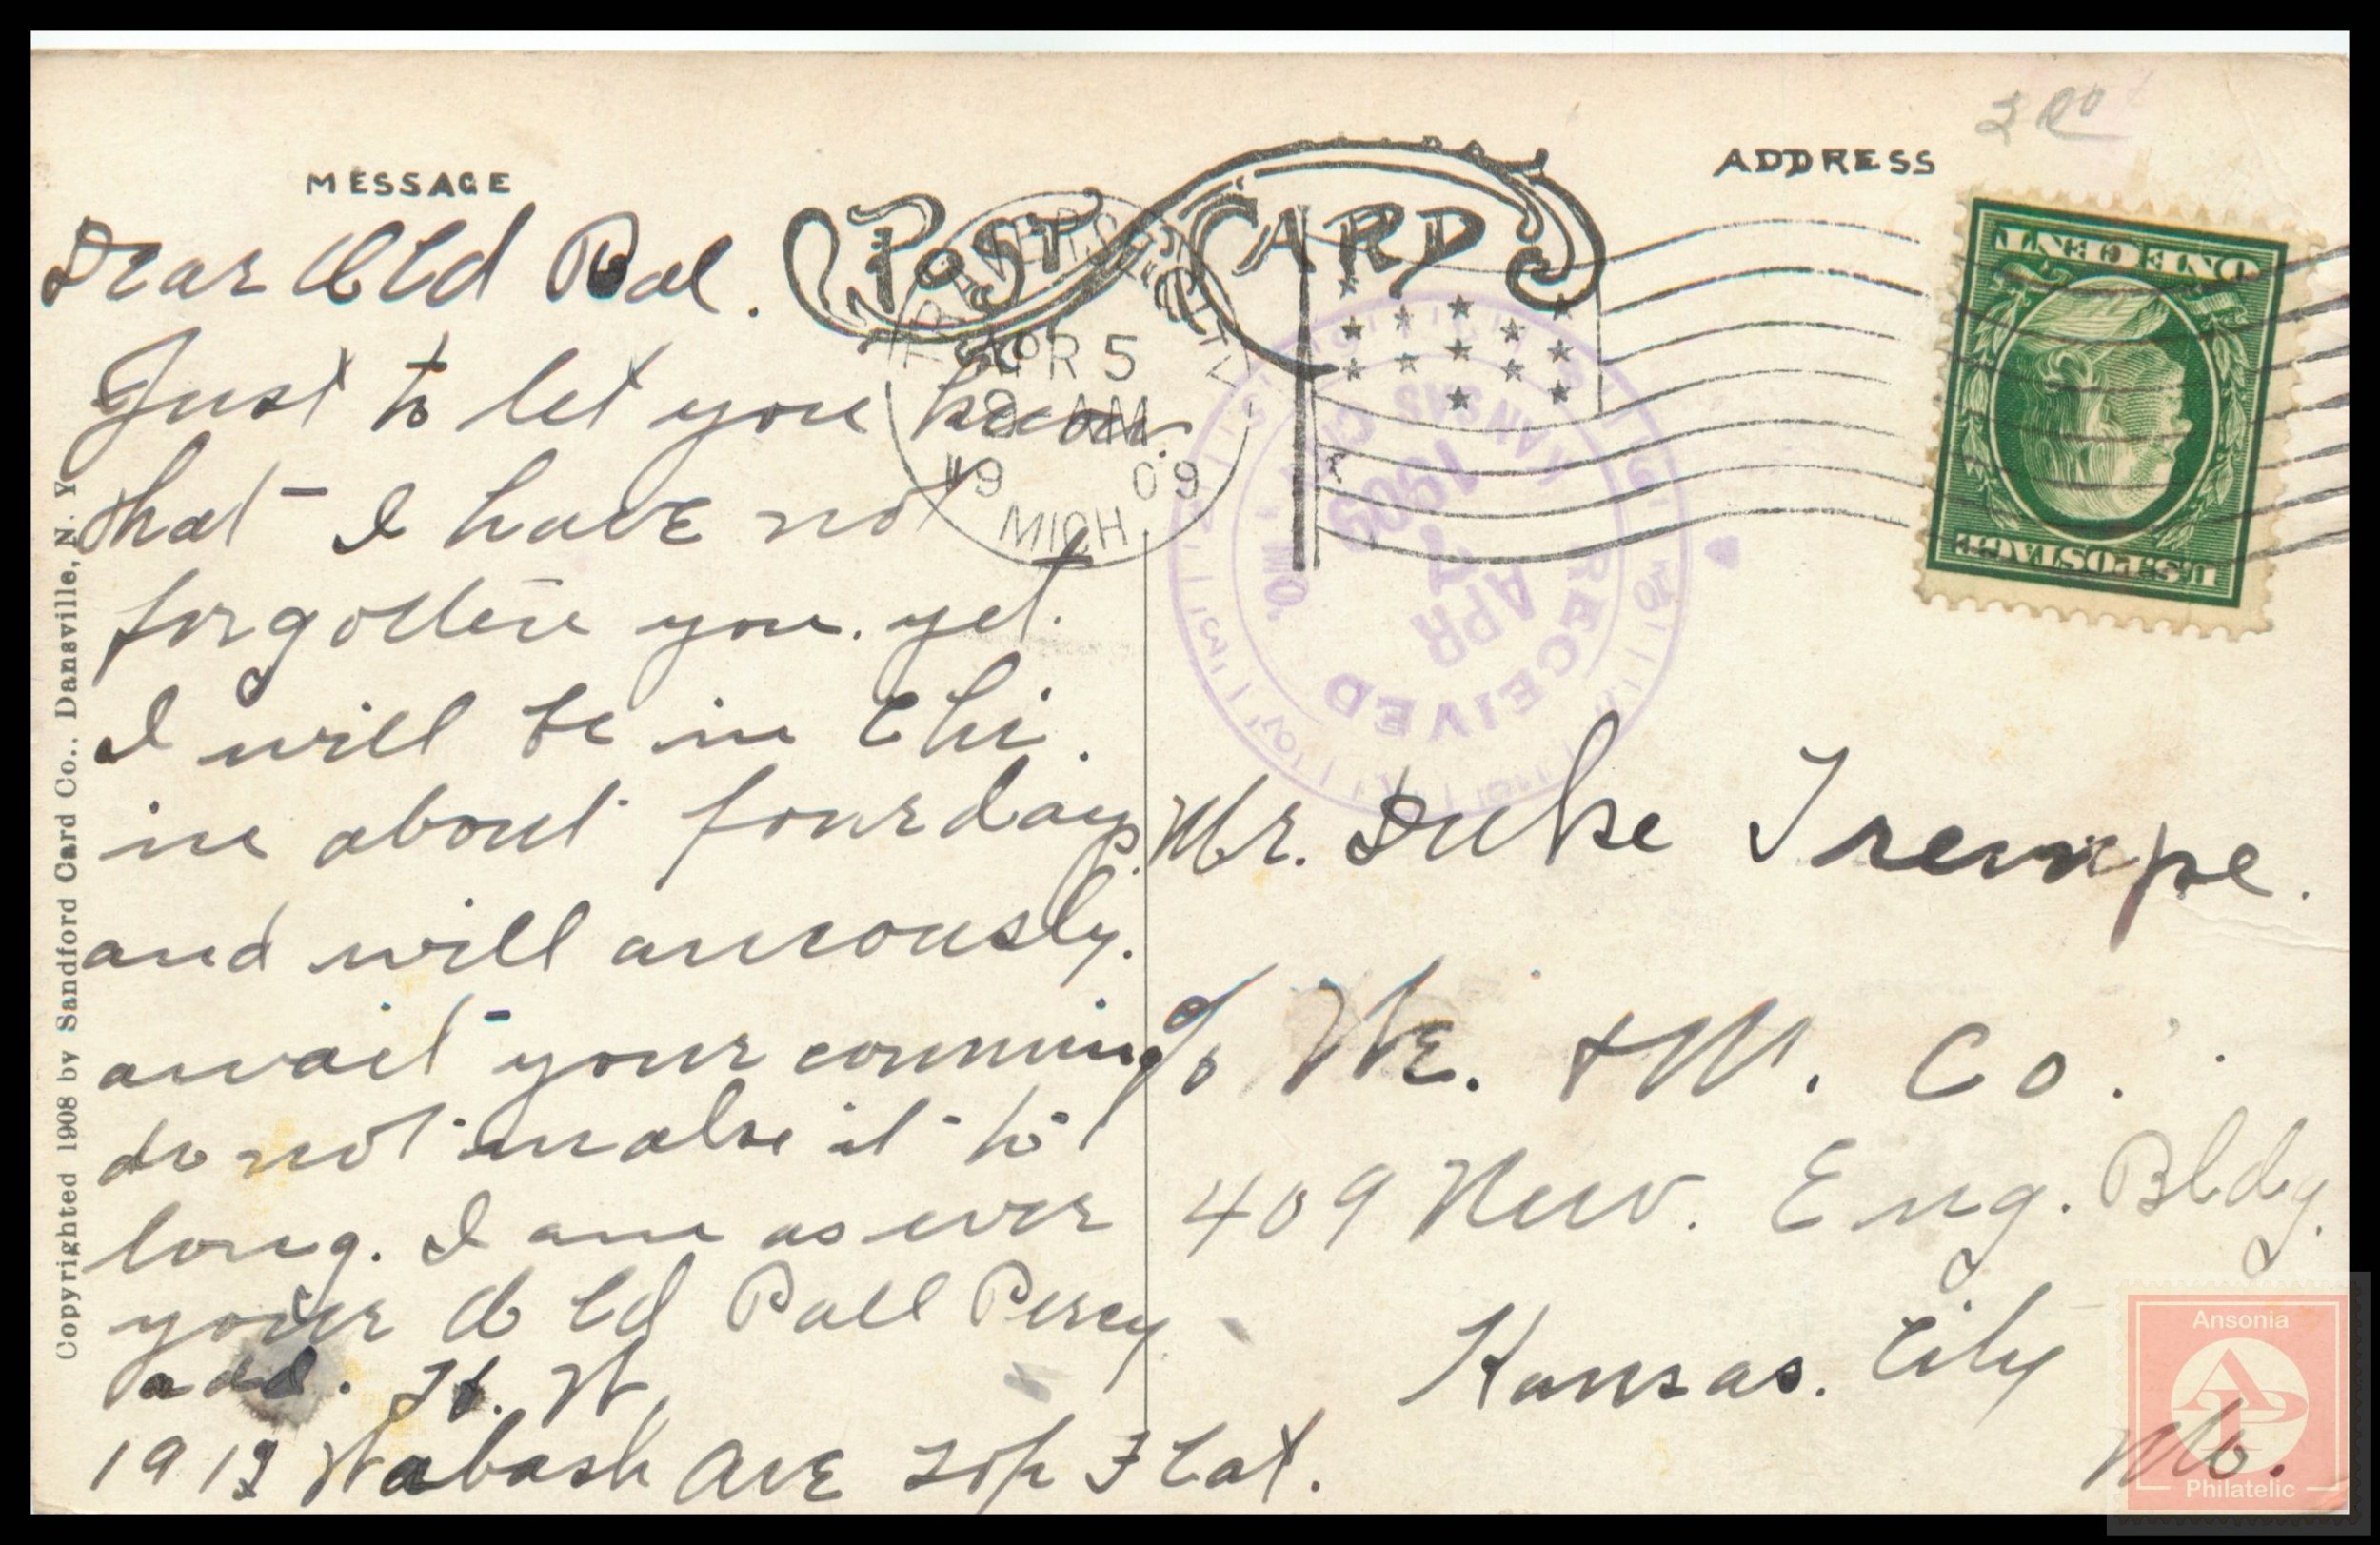 MESSAGE
POST CARD
ADDRESS
Dear Old Pal.
Just to let you know
that I have not
forgotten you. yet.
I will be in Chi.
in about four days.
and will anxously.
await your comming
do not make it to
long. I am as ever
your Old Pall Percy
add. H. W.
Wabash Ave Top Flat.
TRAVERSE CITY
APR 5
AM
19 09
MICH
RECEIVED
APR
1909
KANSAS CITY, MO.
ONE CENT
U.S. POSTAGE
Mr. Duke Trempe.
c/o & M. Co.
409 New. Eng. Bldg.
Kansas. City
Mo.
Copyrighted 1908 by Sandford Card Co., Dansville, N. Y.
Ansonia
AP
Philatelic